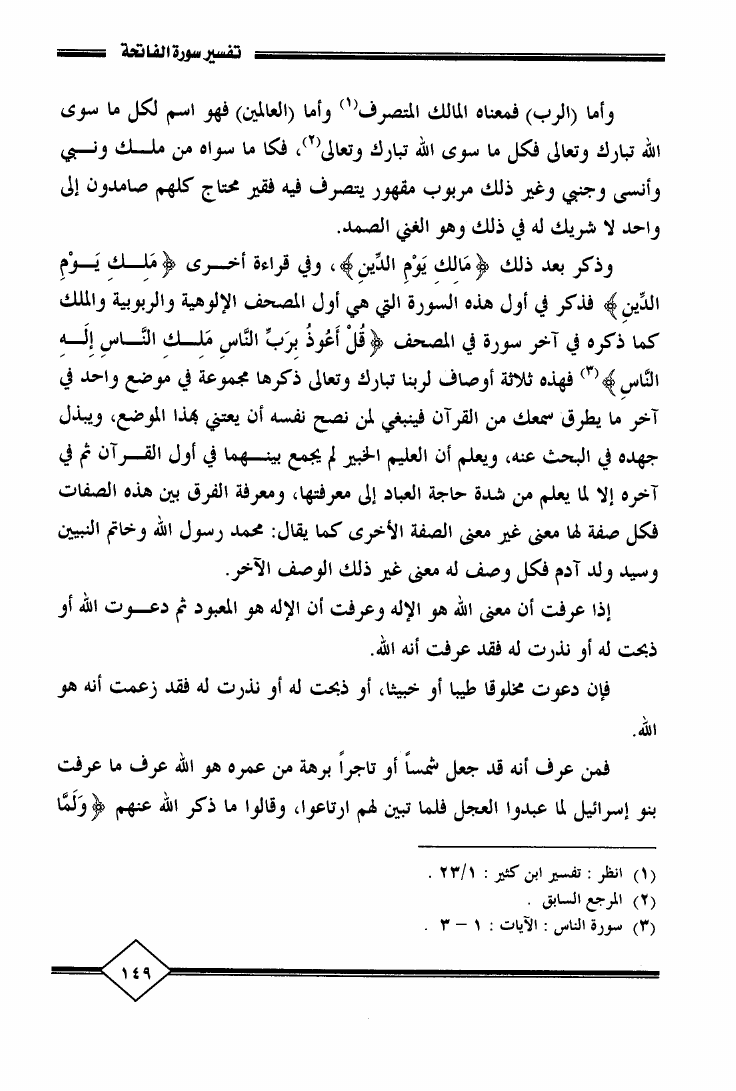 تفسير سورة الفاتحة
وأما (الرب) فمعناه المالك المتصرف(١) وأما (العالمين) فهو اسم لكل ما سوى
الله تبارك وتعالى فكل ما سوى الله تبارك وتعالى(٢)، فكا ما سواه من ملك ونبي
وأنسى وجنبي وغير ذلك مربوب مقهور يتصرف فيه فقير محتاج كلهم صامدون إلى
واحد لا شريك له في ذلك وهو الغني الصمد.
وذكر بعد ذلك ﴿مَالِكِ يَوْمِ الدِّينِ﴾، وفي قراءة أخرى ﴿مَلِكِ يَوْمِ
الدِّينِ﴾ فذكر في أول هذه السورة التي هي أول المصحف الإلوهية والربوبية والملك
كما ذكره في آخر سورة في المصحف ﴿قُلْ أَعُوذُ بِرَبِّ النَّاسِ مَلِكِ النَّاسِ إِلَهِ
النَّاسِ﴾(٣) فهذه ثلاثة أوصاف لربنا تبارك وتعالى ذكرها مجموعة في موضع واحد في
آخر ما يطرق سمعك من القرآن فينبغي لمن نصح نفسه أن يعتني بهذا الموضع، ويبذل
جهده في البحث عنه، ويعلم أن العليم الخبير لم يجمع بينهما في أول القرآن ثم في
آخره إلا لما يعلم من شدة حاجة العباد إلى معرفتها، ومعرفة الفرق بين هذه الصفات
فكل صفة لها معنى غير معنى الصفة الأخرى كما يقال: محمد رسول الله وخاتم النبيين
وسيد ولد آدم فكل وصف له معنى غير ذلك الوصف الآخر.
إذا عرفت أن معنى الله هو الإله وعرفت أن الإله هو المعبود ثم دعوت الله أو
ذبحت له أو نذرت له فقد عرفت أنه الله.
فإن دعوت مخلوقا طيبا أو خبيثا، أو ذبحت له أو نذرت له فقد زعمت أنه هو
الله.
فمن عرف أنه قد جعل شمساً أو تاجراً برهة من عمره هو الله عرف ما عرفت
بنو إسرائيل لما عبدوا العجل فلما تبين لهم ارتاعوا، وقالوا ما ذكر الله عنهم ﴿وَلَمَّا
(١) انظر : تفسير ابن كثير : ٢٣/١ .
(٢) المرجع السابق .
(٣) سورة الناس : الآيات : ١ – ٣ .
١٤٩